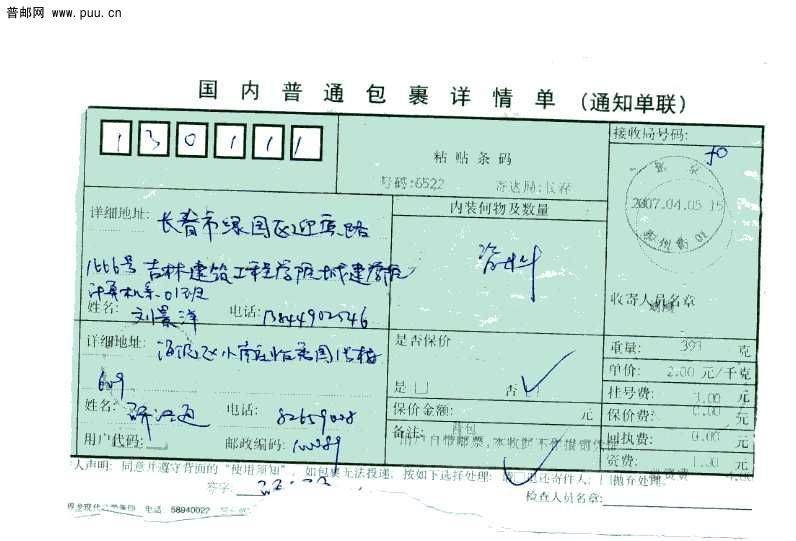 普邮网 www.puu.cn
国内普通包裹详情单(通知单联)
130111
粘贴条码
接收局号码:
号码:6522 寄达局:长春
2007.04.05 15
详细地址: 长春市绿园区迎宾路
1666号吉林建筑工程学院城建学院
计算机系 01班
姓名: 刘景洋 电话: 13844902546
内装何物及数量
资料
收寄人员名章
详细地址: 海淀区小南庄怡秀园1号楼
609
姓名: 电话: 82659028
用户代码: 邮政编码: 100089
是否保价
是 否
保价金额: 元
备注:
重量: 393 克
单价: 2.00 元/千克
挂号费: 3.00 元
保价费: 0.00 元
回执费: 0.00 元
资费: 1.00 元
人声明: 同意并遵守背面的“使用须知”,如包裹无法投递,按如下选择处理: 退还寄件人; 抛弃处理。
签字:
检查人员名章:
电话 58940022